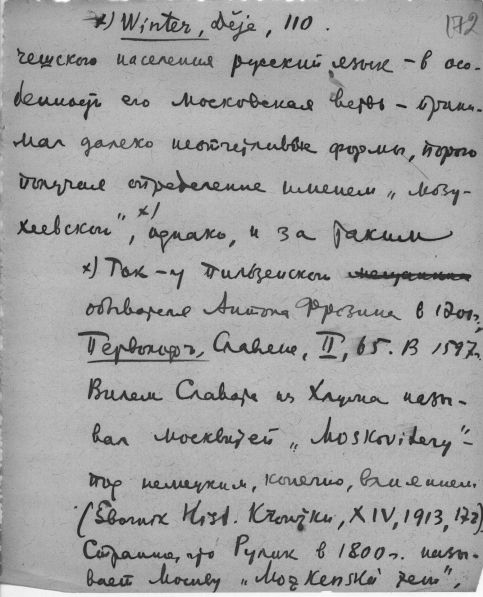 x) Winter, Děje, 110. 172
чешского населения русский язык – в осо-
бенности его московская ветвь – прини-
мал далеко неотчетливые формы, порою
получая определение именем „мозу-
хеевской", x) однако, и за таким
x) Так – у пильзенского
обывателя Антона Фрозина в 1701г.,
Первольф, Славяне, II, 65. В 1597г.
Вилем Славата из Хлума назы-
вал москвитей „Moskovitery" –
под немецким, конечно, влиянием
(Sbornik Hist. Kroužku, XIV, 1913, 172).
Странно, что Рулик в 1800г. назы-
вает Москву „Mozkenská zem",